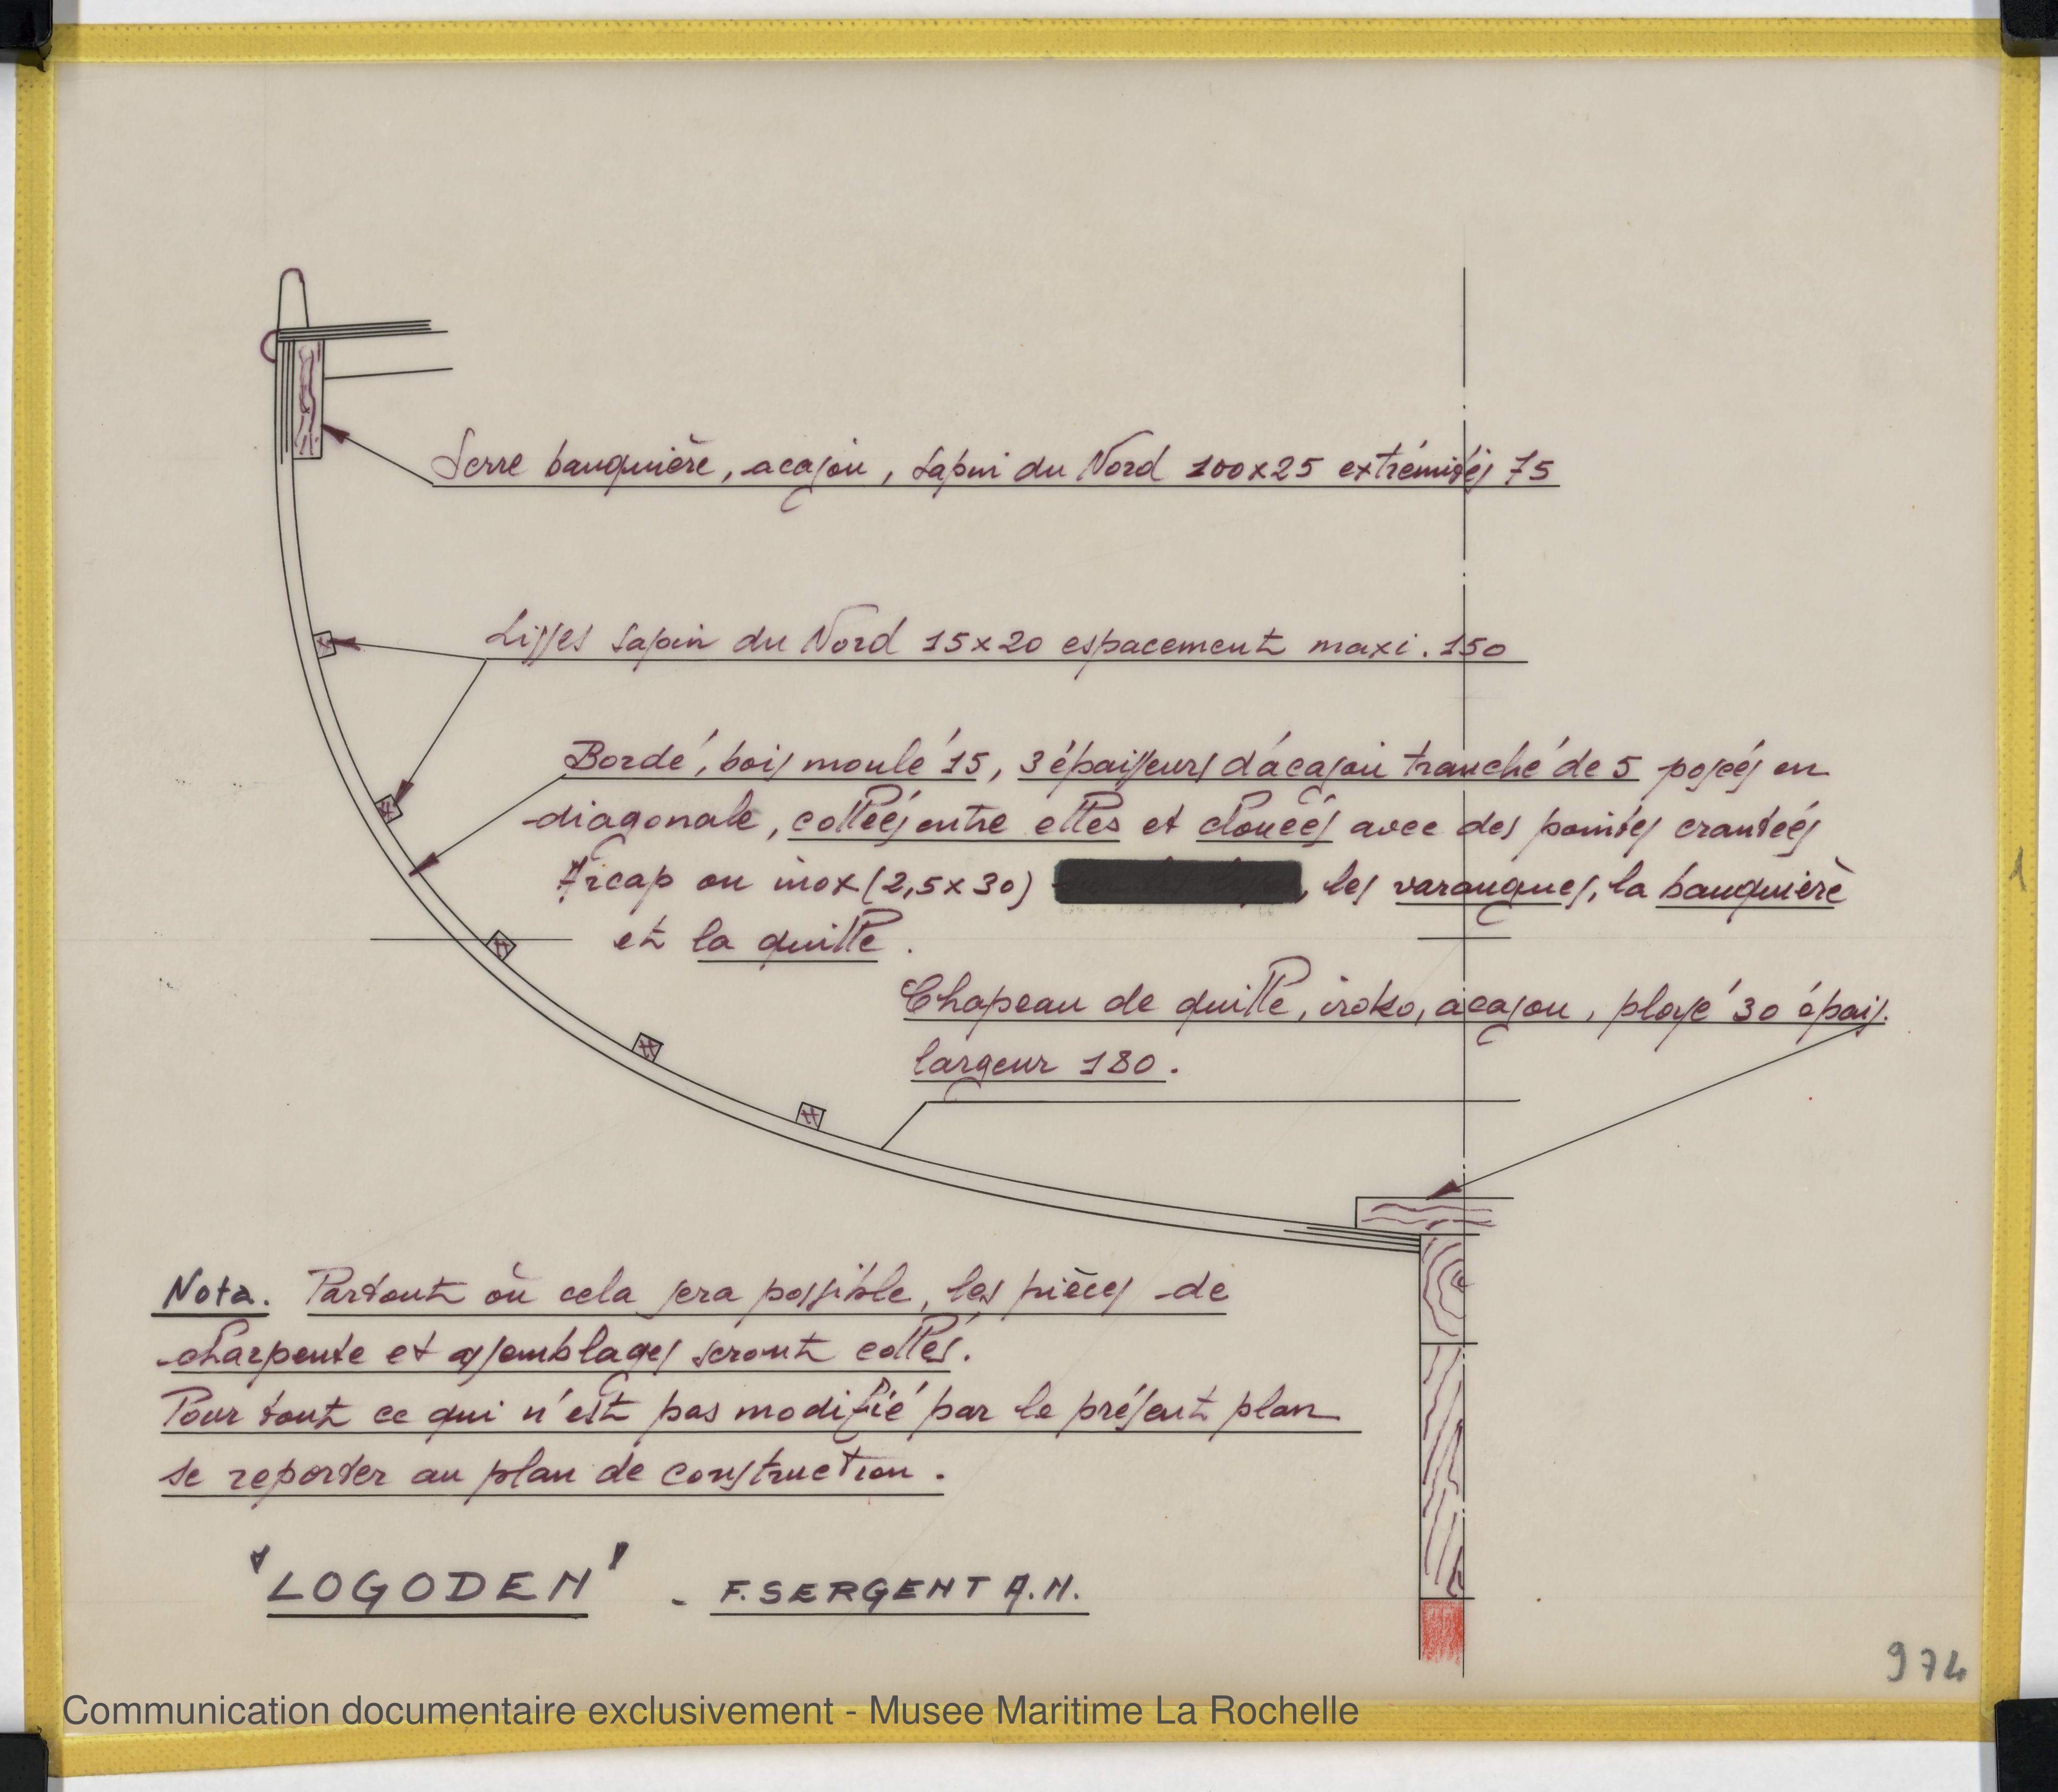 Serre bauquière, acajou, sapin du Nord 100x25 extrémités 75
Lisses sapin du Nord 15x20 espacement maxi. 150
Bordé, bois moulé 15, 3 épaisseurs d'acajou tranché de 5 posées en
diagonale, collées entre elles et clouées avec des pointes crantées
Arcap ou inox (2,5x30) , les varangues, la bauquière
et la quille.
Chapeau de quille, iroko, acajou, ployé 30 épais.
largeur 180.
Nota. Partout où cela sera possible, les pièces de
charpente et assemblages seront collés.
Pour tout ce qui n'est pas modifié par le présent plan
se reporter au plan de construction.
"LOGODEN" - F. SERGENT A.N.
974
1
Communication documentaire exclusivement - Musee Maritime La Rochelle